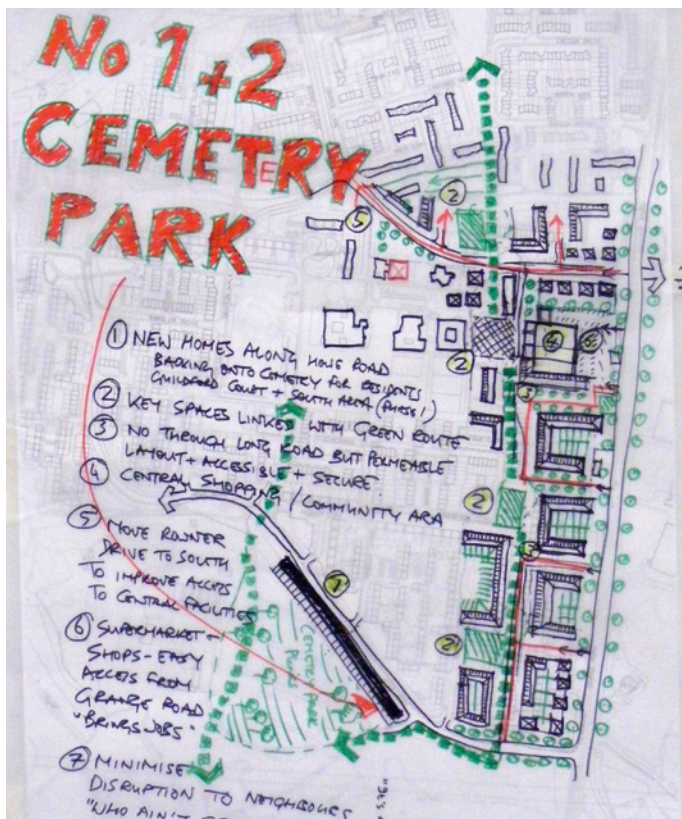 No 1+2
CEMETRY
E
PARK
① NEW HOMES ALONG HOWE ROAD
BACKING ONTO CEMETRY FOR RESIDENTS
GUILDFORD COURT + SOUTH AREA (PHASE 1)
② KEY SPACES LINKED WITH GREEN ROUTE
③ NO THROUGH LONG ROAD BUT PERMEABLE
LAYOUT + ACCESSIBLE + SECURE
④ CENTRAL SHOPPING / COMMUNITY AREA
⑤ MOVE ROWNER
DRIVE TO SOUTH
TO IMPROVE ACCESS
TO CENTRAL FACILITIES
⑥ SUPERMARKET -
SHOPS - EASY
ACCESS FROM
GRANGE ROAD
"BRINGS JOBS"
⑦ MINIMISE
DISRUPTION TO NEIGHBOURS
"WHO AIN'T
②
⑤
②
④
③
②
②
①
CEMETERY PARK